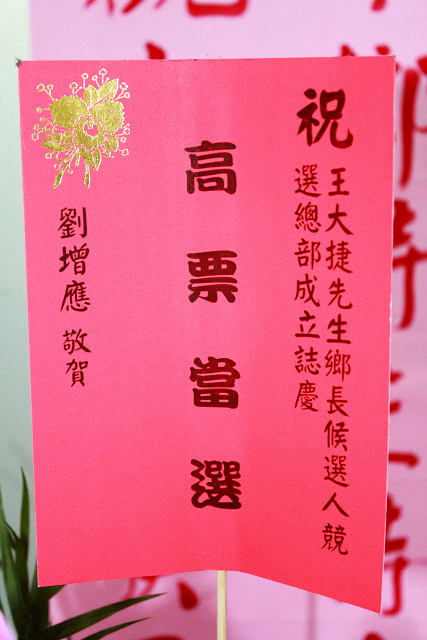 祝
王大捷先生鄉長候選人競
選總部成立誌慶
高票當選
劉增應 敬賀